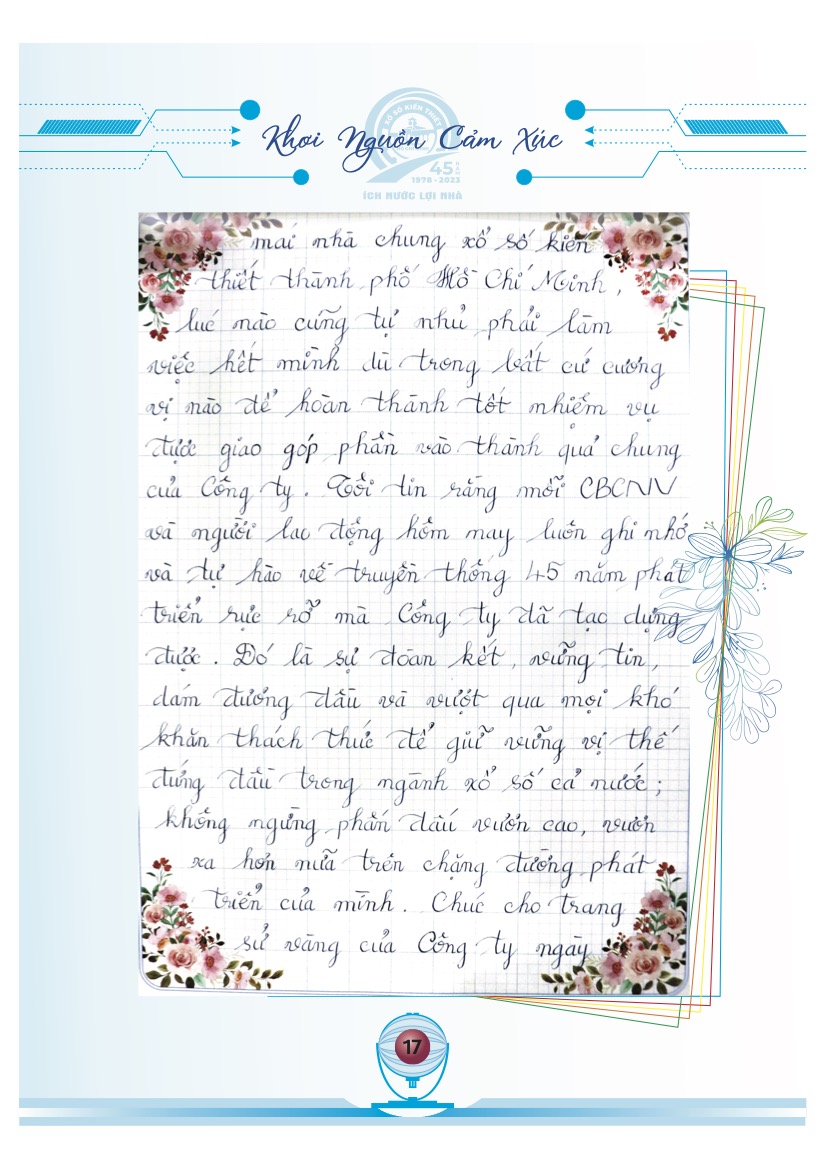 XỔ SỐ KIẾN THIẾT
Khơi Nguồn Cảm Xúc
45 NĂM
1978 - 2023
ÍCH NƯỚC LỢI NHÀ
mái nhà chung xổ số kiến
thiết thành phố Hồ Chí Minh,
lúc nào cũng tự nhủ phải làm
việc hết mình dù trong bất cứ cương
vị nào để hoàn thành tốt nhiệm vụ
được giao góp phần vào thành quả chung
của Công ty. Tôi tin rằng mỗi CBCNV
và người lao động hôm nay luôn ghi nhớ
và tự hào về truyền thống 45 năm phát
triển rực rỡ mà Công ty đã tạo dựng
được. Đó là sự đoàn kết, vững tin,
dám đương đầu và vượt qua mọi khó
khăn thách thức để giữ vững vị thế
đứng đầu trong ngành xổ số cả nước;
không ngừng phấn đấu vươn cao, vươn
xa hơn nữa trên chặng đường phát
triển của mình. Chúc cho trang
sử vàng của Công ty ngày
17